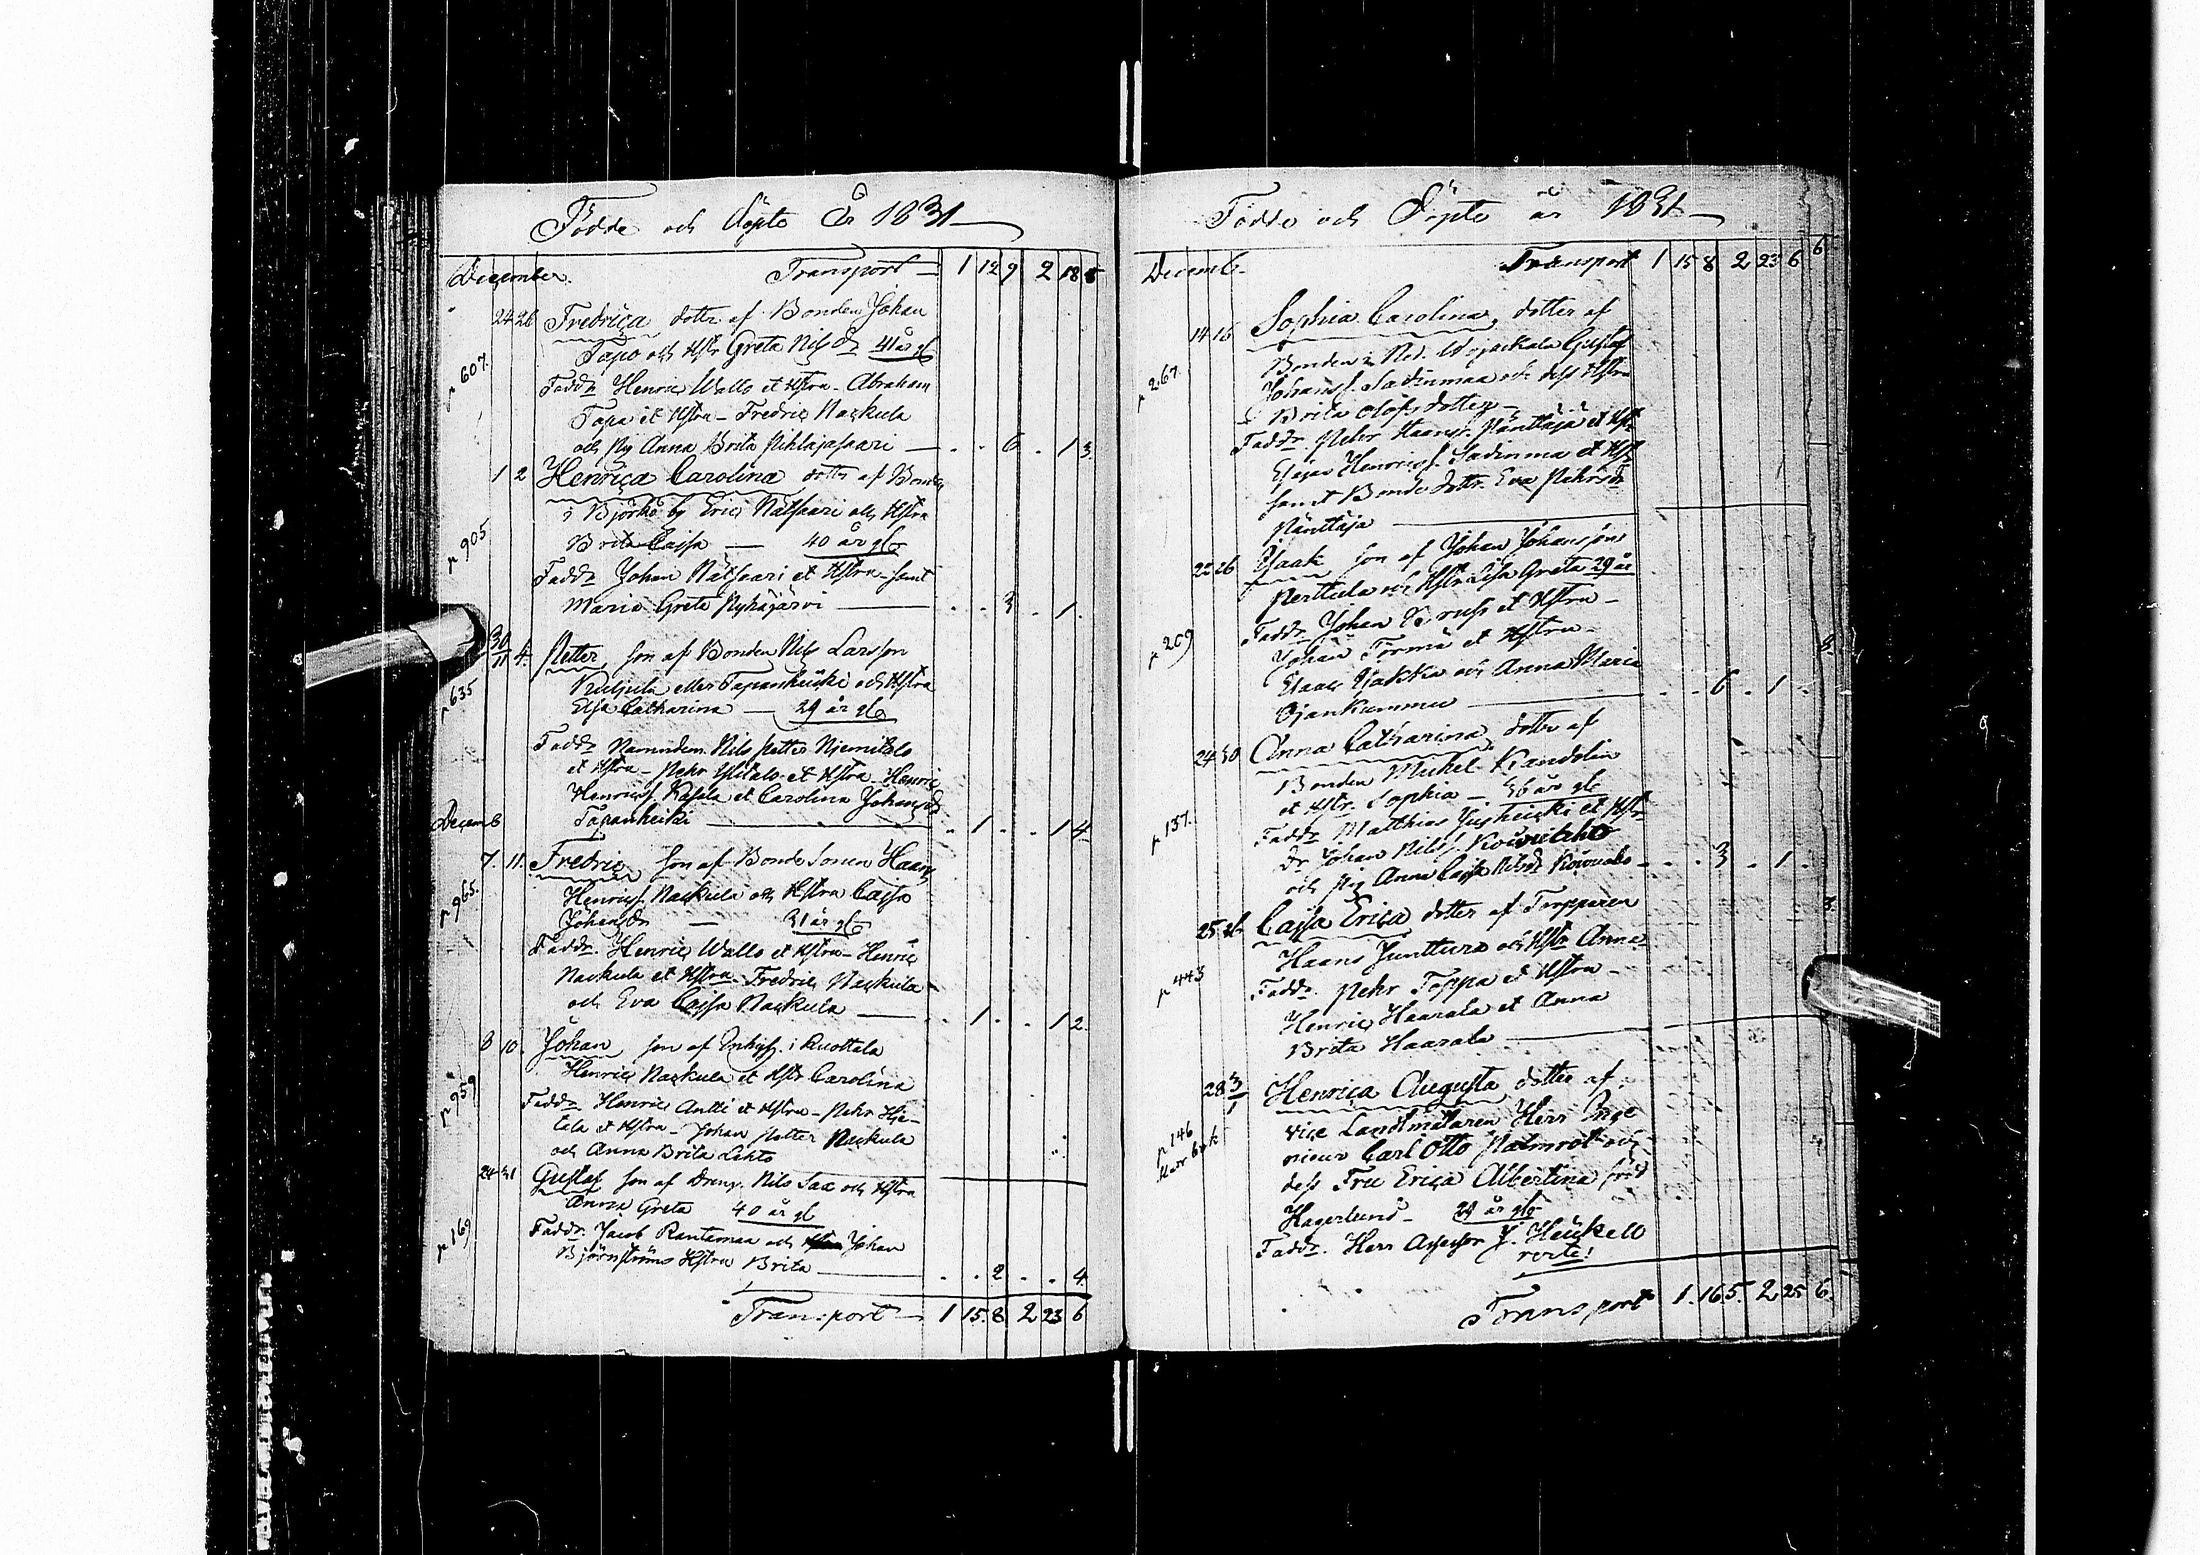 Födde och Döpte År 1831
December. Transport 1 12 9 2 18 5
24 26 Fredrica dotter af Bonden Johan
Tapo och Hstr Greta Nilsdr 41 år gl
p 607. Faddr Henric Wallo et Hstra - Abraham
Tapa et Hstra - Fredric Naskula
och Pig Anna Brita Pihlajasaari . . 6 . 1 3.
1 2 Henrica Carolina dotter af Bonden
i Björkö by Eric Nätsaari och Hstra
p 905 Brita Cajsa 40 år gl
Faddr Johan Nätsaari et Hstra samt
Maria Greta Pyhäjärvi . . 3 . 1 .
30/11 4. Petter son af Bonden Nils Larsson
Kuljula eller Tapanheiki och Hstra
p 635 Elsa Catharina 29 år gl
Faddr Nämndem. Nils Petter Njemitalo
et Hstra - Pehr Ylitalo et Hstra Henric
Henricss. Rasala et Carolina Johansdr
Decemb Tapanheiki . 1 . . 1 4.
7. 11. Fredric son af Bonde Sonen Haans
Henricss. Naskula och Hstra Cajsa
p 965. Johansdr 31 år gl
Faddr. Henric Wallo et Hstra - Henric
Naskula et Hstra Fredric Naskula
och Eva Cajsa Naskula . 1 . . 1 2.
8 10. Johan son af Inhys. i Ruottala
Henric Naskula et Hstr Carolina
p 959 Faddr Henric Antti et Hstra - Pehr Hie-
tala et Hstra - Johan Petter Naskula
och Anna Brita Lehto
24 31 Gustaf son af Dreng. Nils Sax och Hstra
Anna Greta 40 år gl
p 169 Faddr. Jacob Rantamaa och Johan
Björnströms Hstra Brita . . 2 . . 4.
Transport 1 15. 8 2 23 6
Födde och Döpte år 1831
Decemb. Transport 1 15 8 2 23 6 6
14 16 Sophia Carolina, dotter af
Bonden i Ned. Wojackala Gustaf
p 267. Johanss. Sadinmaa och dess Hstra
Brita Olofsdotter
Faddr. Pehr Haanss. Pänttäjä et Hstr
Esajas Henricss. Sadinmaa et Hstr
samt Bonde dottr. Eva Pehrsdr
Pänttäjä
22 26 Isaak son af Johan Johansson
Perttula och Hstr Lisa Greta 29 år
Faddr Johan Kruss et Hstra -
p 209 Johan Törmä et Hstra - 3.
Claas Ojakka och Anna Maria
Ojankummu . . 6 . 1 .
24 30 Anna Catharina dotter af
Bonden Michel Kandelin
et Hstr. Sophia - 36 år gl
p 137. Faddr Matthias Jushejcki et Hstr
Dr Johan Nilss. Koivulehto
och Pig Anna Cajsa Nilsdr Koivuaho . . 3 . 1 .
25 26 Cajsa Erica dotter af Torpparen 3.
Haans Junttura och Hstr Anna
p 443 Faddr. Pehr Toppa et Hstra -
Henric Haarala et Anna
Brita Haarala
28 3/1 Henrica Augusta dotter af
vice Landtmätaren Herr Inge
p 146 nieur Carl Otto Palmroth och
dess Fru Erica Albertina född
Hagerlund - 29 år gl
Faddr. Herr Assessor J. Heickell
verte!
Transport 1. 16 5. 2 25 6.